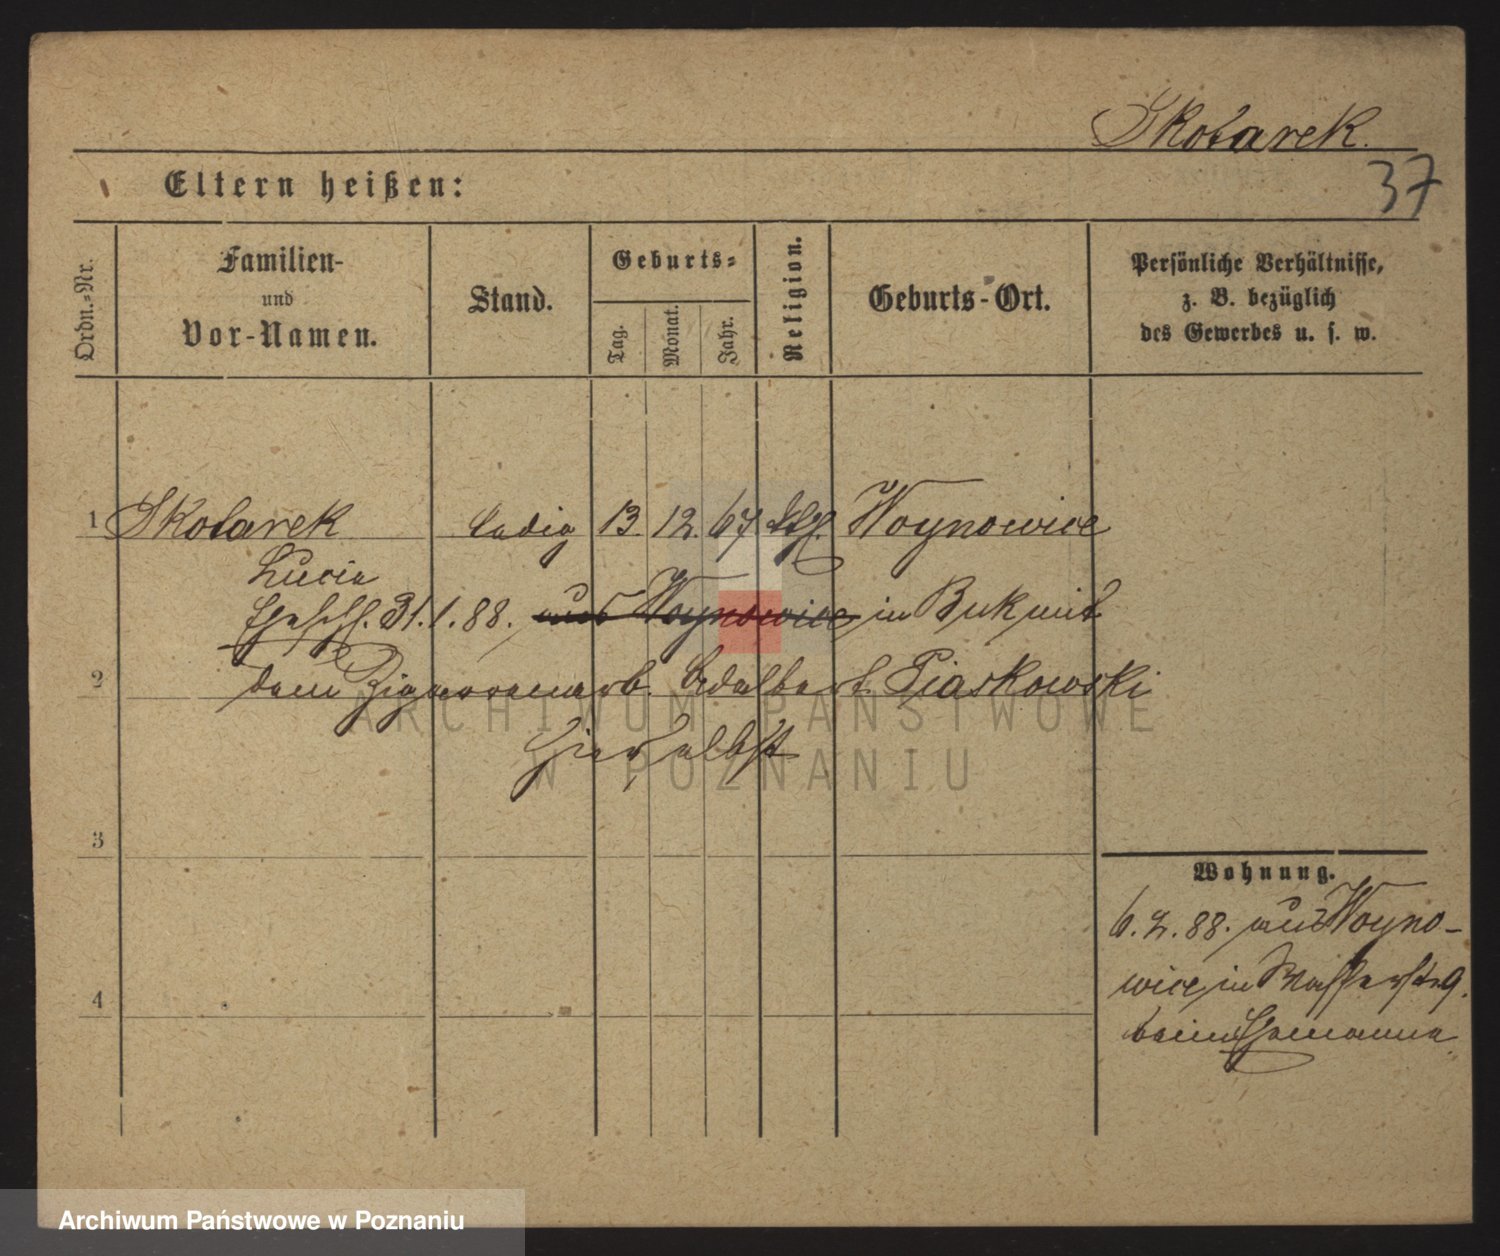 Skotarek.
37
Eltern heißen:
Ordn.=Nr.
Familien-
und
Vor-Namen.
Stand.
Geburts=
Tag.
Monat.
Jahr.
Religion.
Geburts-Ort.
Persönliche Verhältnisse,
z. B. bezüglich
des Gewerbes u. s. w.
1 Skotarek ledig 13. 12. 67 kth. Woynowice
Lucia
Eheschl. 31.1.88. aus Woynowice in Buk mit
2 dem Zigarrenarb. Adalbert Piaskowski
hierselbst
ARCHIWUM PAŃSTWOWE
W POZNANIU
3
Wohnung.
6.2.88. aus Woyno-
wice in Wasserstr. 9.
beim Ehemanne.
4
Archiwum Państwowe w Poznaniu